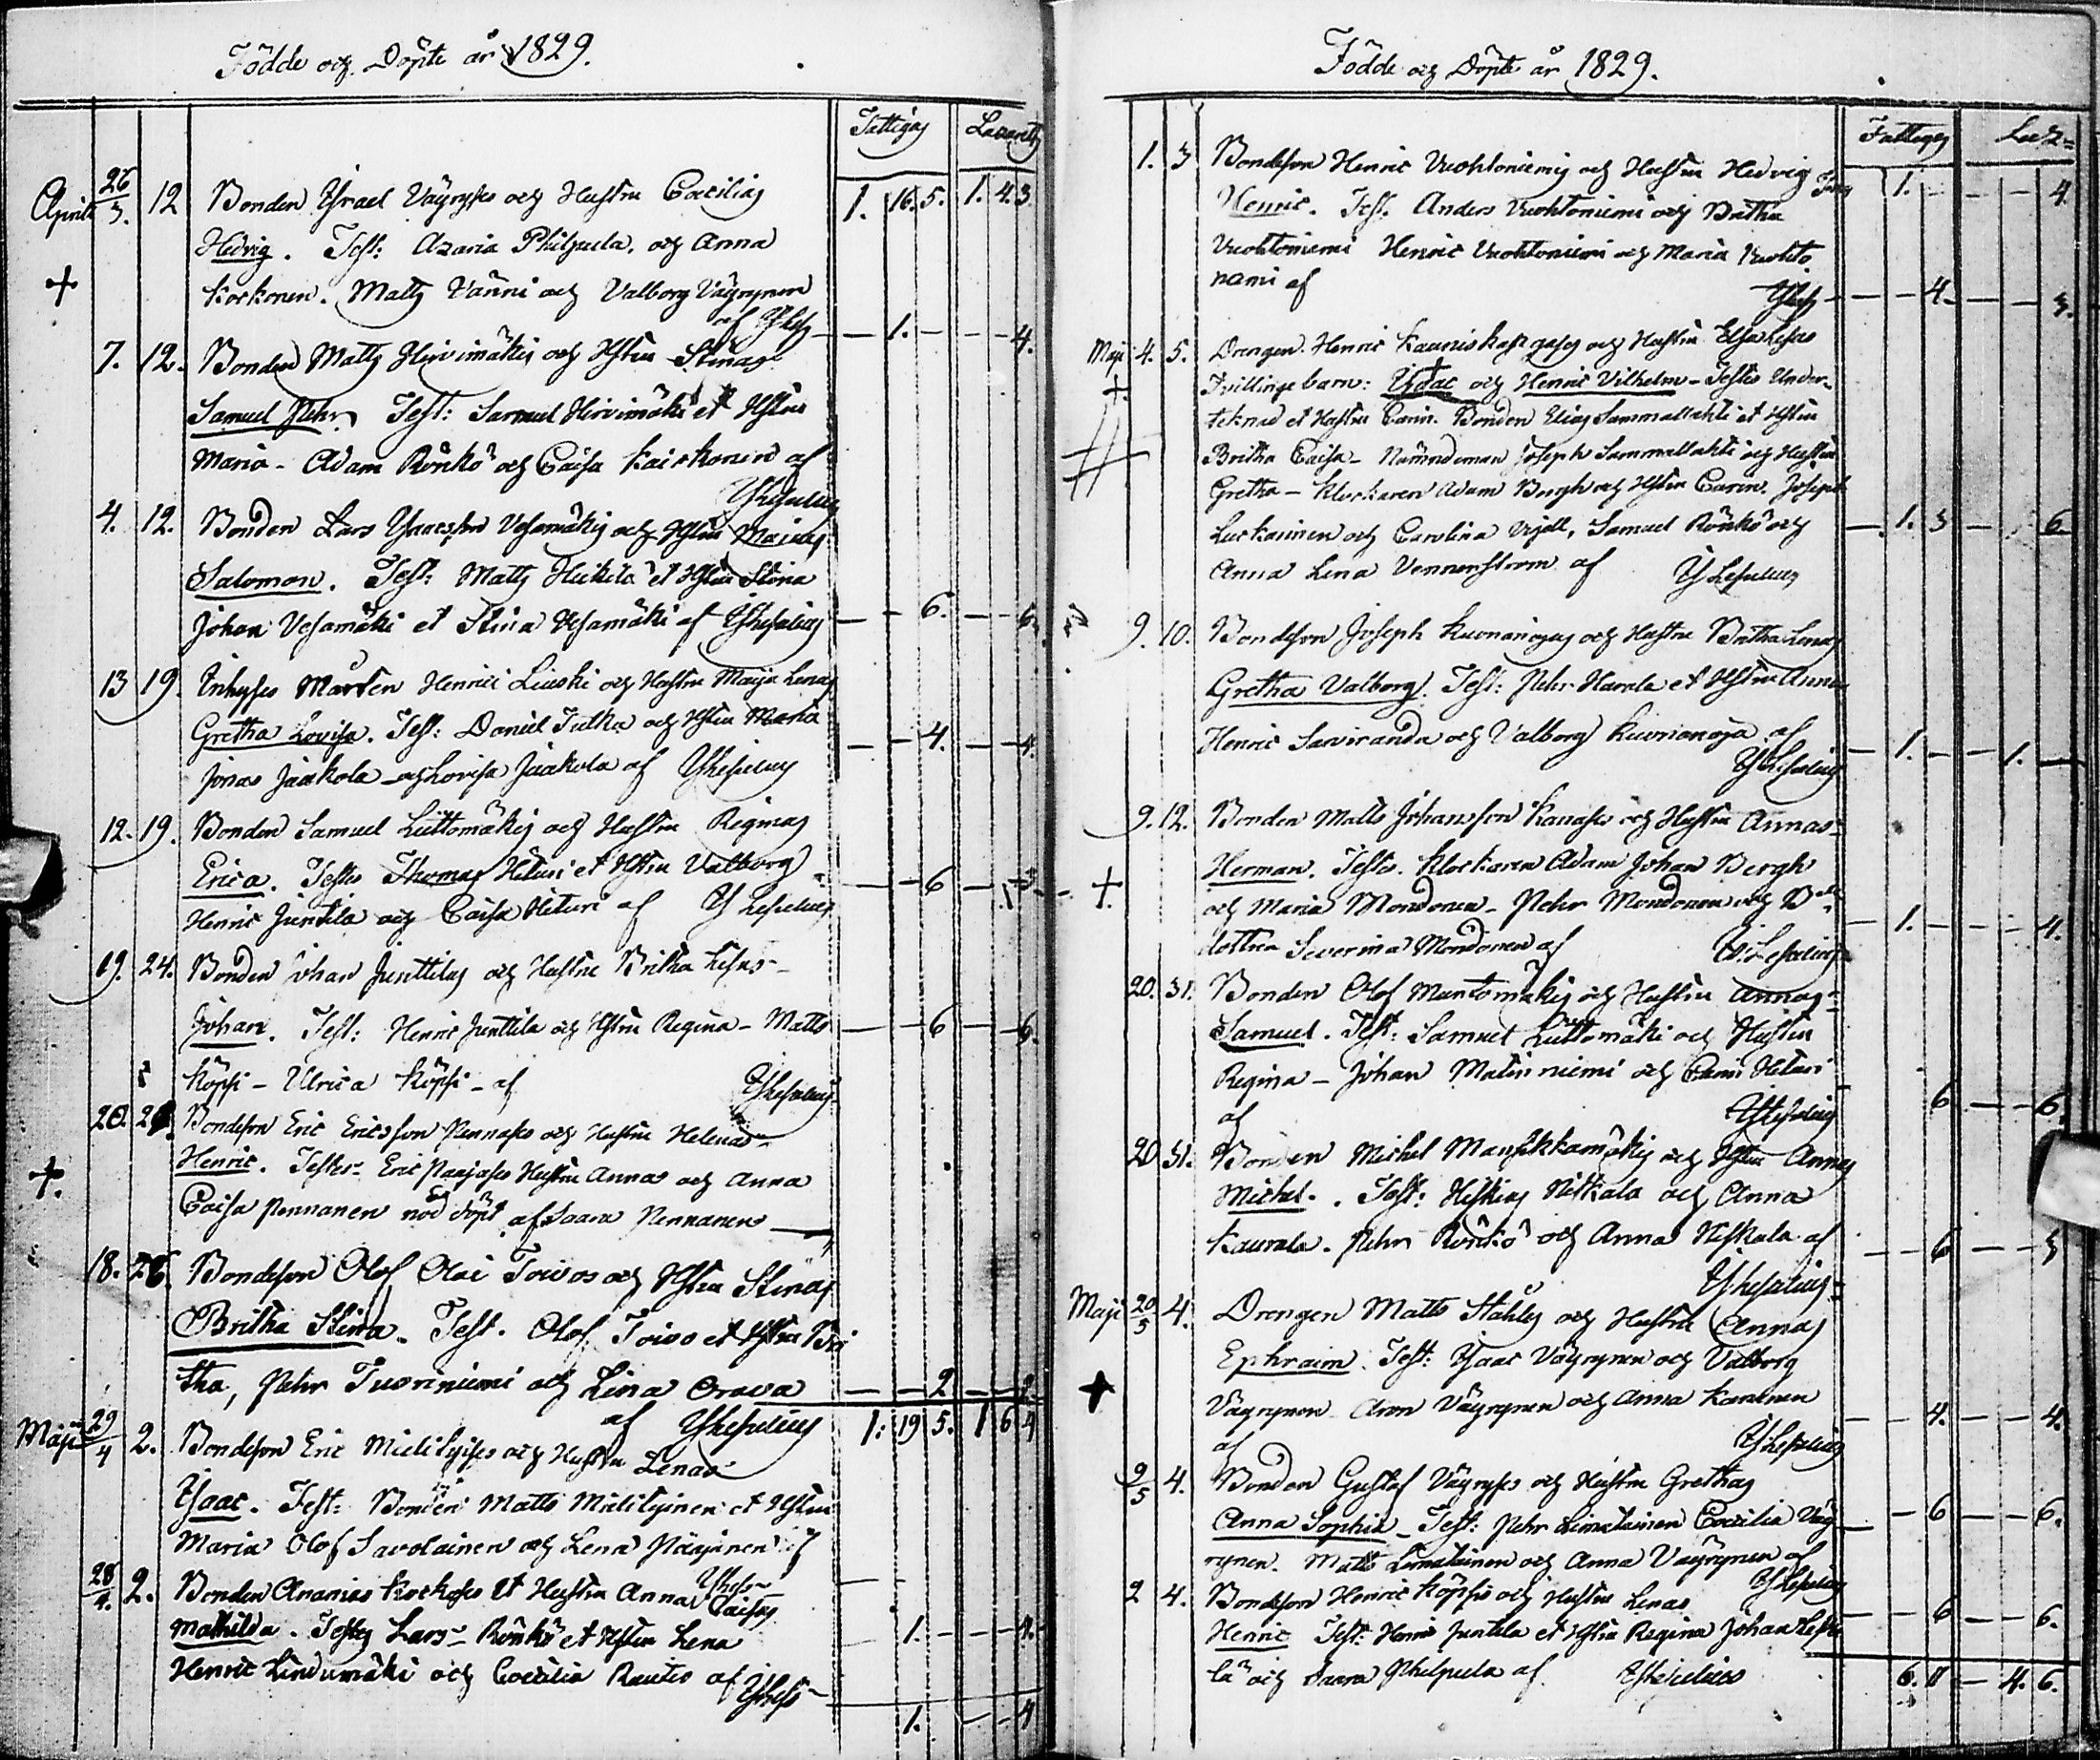 Födde och Döpte år 1829.
Fattigas Lazarets
April 26/3. 12 Bonden Ysrael Väyryses och Hustru Cæcilias 1. 16. 5. 1. 4. 3
Hedvig. Test: Azaria Philpula. och Anna
Korkonen. Matts Vänni och Valborg Väyrynen
af 1. 4.
7. 12. Bonden Matts Hirvimäkis och Hstru Stinas
Samuel Pehr. Test: Samuel Hirvimäki et Hstru
Maria - Adam Rönkö och Caisa Kaikonen af
4. 12. Bonden Lars Vesamäkis och Hstrus Maias
Salomon. Test: Matts Heikilä et Hstru Stina
Johan Vesamäki et Stina Vesamäki af 6. 6.
13 19. Inhyses Mårten Henrici Liuski och Hustru Maija Lenas
Gretha Lovisa. Test: Daniel Tulka och Hstru Maria 4. 4.
Jonas Jaakola och Lovisa Jaakola af
12. 19. Bonden Samuel Luttomäkis och Hustru Reginas
Erica. Testes Thomas Hituri et Hstru Valborg 6
Henric Juntila och Caisa Hituri af
19. 24. Bonden Johan Junttilas och Hustru Britha Lisas
Johan. Test: Henric Juntila och Hstru Regina - Matts 6 6.
Köpsi - Ulrica Köpsi - af
20. Bondeson Eric Ericsson Pennases och Hustru Helenas
Henric. Testes Eric Hustru Annas och Anna
Caisa Pennanen nöd döpt af Saara Pennanen
18. 26. Bondeson Olof Olai Toivos och Hstru Stinas
Britha Stina. Test. Olof Toivo et Hstru Bri
tha, Pehr Tuoriniemi och Lina Orava 2 2.
af 1: 19 5. 1 6 4
Maji 29/4 2. Bondeson Eric och Hustru Lenas
Ysaac. Test: Bonden Matts et Hstru
Maria Olof Savolainen och Lena af
28/4. 2. Bonden Ananias Korkoses et Hustru Anna Caisas
Mathilda. Testes Lars Rönkö et Hstru Lena 1. 4.
Henric Lindumäki och Cœcilia Rautio af
1. 4
Födde och Döpte år 1829.
Fattiges Laz=
1. 3 Bondeson Henric Vuohtoniemis och Hustru Hedvig 1. 4.
Henric. Test. Anders Vuohtoniemi och Britha
Vuohtoniemi Henric Vuohtoniemi och Maria Vuohto
niemi af 4. 3.
Maji 4. 5. Drengen Henric Kauniskangases och Hustru Elsa Lisas
Tvillinge barn: Ysac och Henric Vilhelm - Testes Under-
teknad et Hustru Carin. Bonden Elias Sammallahti et Hstru
Britha Caisa - Nämndeman Joseph Sammallahti och Hustru
Gretha - Klockaren Adam Bergh och Hstru Carin. Joseph
Luckarinen och Carolina Vijell, Samuel Rönkö och 1. 3 6
Anna Lena Vennerström af
9. 10. Bondeson Joseph Kuonanojas och Hustru Britha Lenas
Gretha Valborg. Test: Pehr Harala et Hstru Anna
Henric Sarviranda och Valborg Kuonanoja af 1. 1.
9. 12. Bonden Matts Johansson Kanases och Hustru Annas
Herman. Testes. Klockaren Adam Johan Bergh
och Maria Mondonen - Pehr Mondonen och B
dottren Severina Mondonen af 1. 4.
20. 31. Bonden Olof Muntomäkis och Hustru Annas
Samuel. Test: Samuel Luttomäki och Hustru
Regina - Johan Matinniemi och Carin Hituri
af 6 6.
20 31. Bonden Michel Mansikkamäkis och Hstru Annas
Michel. Test: Hiskias Niskala och Anna
Kaurala. Pehr Rönkö och Anna Niskala af 6 3
Maji 20/5 4. Drengen Matts Ståhles och Hustru Annas
Ephraim. Test: Ysaac Väyrynen och Valborg
Väyrynen Aron Väyrynen och Anna Karoinen 4. 4.
af
9/5 4. Bonden Gustaf Väyryses och Hustru Grethas
Anna Sophia - Test: Pehr Limatainen Cœcilia Väy 6 6.
rynen. Matts Limatainen och Anna Väyrynen af
2 4. Bondeson Henric Köpsis och Hustru Lenas 6 6.
Henric Test: Henric Juntila et Hstru Regina Johan
lä och Saara Philpula af
6. 11 4. 6.